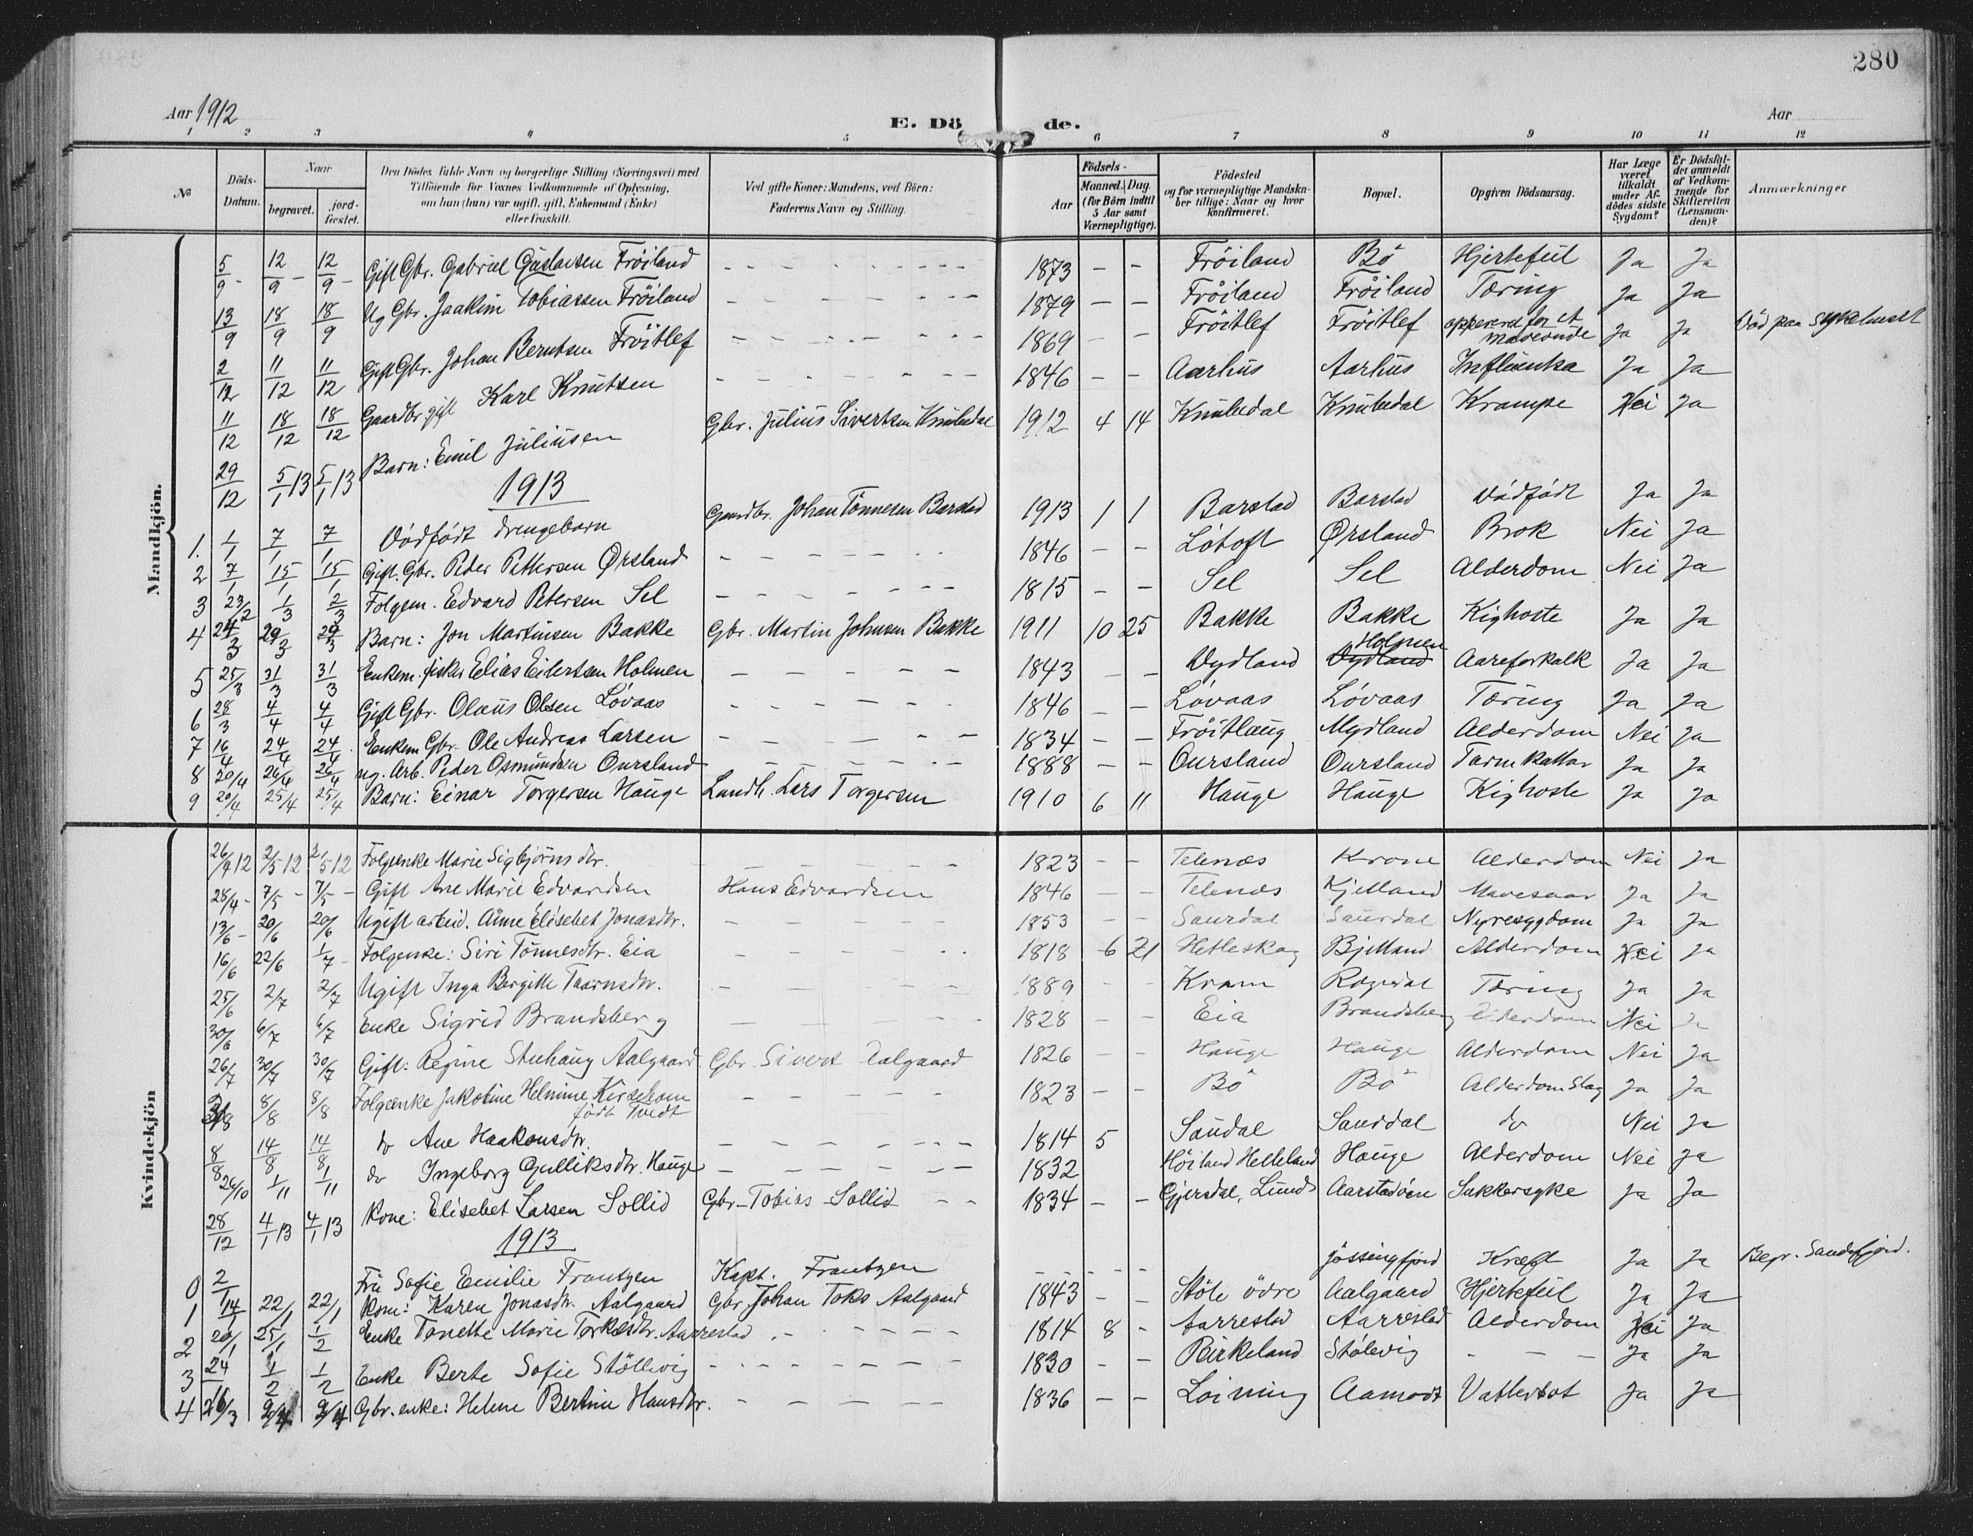 280
Aar 1912 E. Dö de. Aar
1 2 3 4 5 6 7 8 9 10 11 12
№ Döds-Datum. Naar begravet. jord-fæstet. Den Dödes fulde Navn og borgerlige Stilling (Næringsvei) med Tilföiende for Voxnes Vedkommende af Oplysning, om han (hun) var ugift, gift, Enkemand (Enke) eller fraskilt. Ved gifte Koner: Mandens, ved Börn: Faderens Navn og Stilling. Födsels- Aar Maaned. Dag. (for Börn indtil 5 Aar samt Værnepligtige). Födested og for værnepligtige Mandskaber tillige: Naar og hvor konfirmeret. Bopæl. Opgiven Dödsaarsag. Har Læge været tilkaldt under Afdödes sidste Sygdom? Er Dödsfaldet anmeldt af Vedkommende for Skifteretten (Lensmanden)? Anmærkninger
Mandkjön.
5/9 - 12/9 - 12/9 - Gift Gbr. Gabriel Gustavsen Fröiland - - 1873 - - Fröiland Bö Hjertefeil Ja Ja
13/9 18/9 18/9 Ug Gbr. Joakim Tobiassen Fröiland - - 1879 - - Fröiland Fröiland Tæring Ja Ja
2/12 11/12 11/12 Gift Gbr. Johan Berntsen Fröitlef - - 1869 - - Fröitlef Fröitlef opperert for et mavesonde Ja Ja Död paa sykehuset
11/12 18/12 18/12 Gaardbr gift Karl Knutsen - - 1846 - - Aarhus Aarhus Influenka Ja Ja
29/12 5/1 13 5/1 13 Barn: Emil Juliusen Gbr. Julius Sivertsen Knubedal 1912 4 14 Knubedal Knubedal Krampe Nei Ja
1913
1. 1/1 7/1 7/1 Dödfödt drengebarn Gaardbr. Johan Tönnesen Barstad 1913 1 1 Barstad Barstad Dödfödt Ja Ja
2 7/1 15/1 15/1 Gift. Gbr. Peder Pettersen Ørsland - - 1846 - - Lötoft Ørsland Brok Nei Ja
3 23/2 1/3 2/3 Folgem. Edvard Petersen Sel - - 1815 - - Sel Sel Alderdom Nei Ja
4 24/3 29/3 29/3 Barn: Jon Martinsen Bakke Gbr. Martin Johnsen Bakke 1911 10 25 Bakke Bakke Kighoste Ja Ja
5 25/3 31/3 31/3 Enkem. fisker Elias Eilertsen Holmen - - 1843 - - Dydland Holmen Dydland Aareforkalk Ja Ja
6 28/3 4/4 4/4 Gift Gbr. Olaus Olsen Lövaas - - 1846 - - Lövaas Lövaas Tæring Ja Ja
7 16/4 24/4 24/4 Enkem Gbr. Ole Andreas Larsen - - 1834 - - Fröitlaug Mydland Alderdom Nei Ja
8 20/4 26/4 26/4 ug. Arb. Peder Osmundsen Oursland - - 1888 - - Oursland Oursland Tarmkattar Ja Ja
9 20/4 25/4 25/4 Barn: Einar Torgersen Hauge Landh. Lars Torgersen 1910 6 11 Hauge Hauge Kighoste Ja Ja
Kvindekjön
26/4 12 2/5 12 2/5 12 Folgeenke Marie Sigbjörnsdtr. - - 1823 - - Telenæs Krone Alderdom Nei Ja
28/4 - 7/5 - 7/5 - Gift Ane Marie Edvardsen Hans Edvardsen 1846 - - Telenæs Kjelland Mavesaar Ja Ja
13/6 - 20/6 20/6 Ugift arbeid. Anne Elisebet Jonasdtr. - - 1853 - - Saurdal Saurdal Nyresygdom Ja Ja
16/6 22/6 1/7 - Folgenke: Siri Tönnesdtr. Eia - - 1818 6 21 Hetleskog Bjelland Alderdom Nei Ja
25/6 2/7 2/7 Ugift Inga Bergitte Taarnsdtr. - - 1889 - - Kram Rægedal Tæring Ja Ja
30/6 6/7 6/7 Enke Sigrid Brandsberg - - 1828 - - Eia Brandsberg Alderdom Nei Ja
26/7 30/7 30/7 Gift: Regine Stuhaug Aalgaard Gbr. Sivert Aalgaard 1826 - - Hauge Hauge Alderdom Nei Ja
8/8 8/8 Folgeenke Jakobine Helmine Kirkedom födt Tvedt - - 1823 - - Bö Bö Alderdom Slag Ja Ja
8/8 14/8 14/8 do Ane Haakonsdtr. - - 1814 5 Saudal Sauddal do Nei Ja
26/10 1/11 1/11 do Ingeborg Gulliksdtr. Hauge - - 1832 Höiland Helleland Hauge Alderdom Nei Ja
28/12 4/1 13 4/1 13 Kone: Elisebet Larsen Sollid Gbr - Tobias Sollid - - 1834 - - Gjersdal, Lunds Aarstadöen Sukkersyke Ja Ja
1913
0 2/1 Fru Sofie Emilie Frantzen Kapt. Frantzen - - Jössingfjord Kræft Ja Ja Begr. Sandefjord.
1 14/1 22/1 22/1 Kone: Karen Jonasdtr. Aalgaard Gbr Johan Toks Aalgaard 1843 - - Stöle ödre Aalgaard Hjertefeil Ja Ja
2 20/1 25/1 1/2 Enke Tonette Marie Torkelsdtr. Aarrestad - - 1814 8 - Aarrestad Aarrestad Alderdom Nei Ja
3 24/1 1/2 1/2 Enke Berte Sofie Stöllevig - - 1830 - - Birkeland Stölevig - - - Ja Ja
4 26/3 2/4 2/4 Gbr. enke: Helene Bertine Hansdtr. - - 1836 - - Loining Aamodt Vattersot Ja Ja